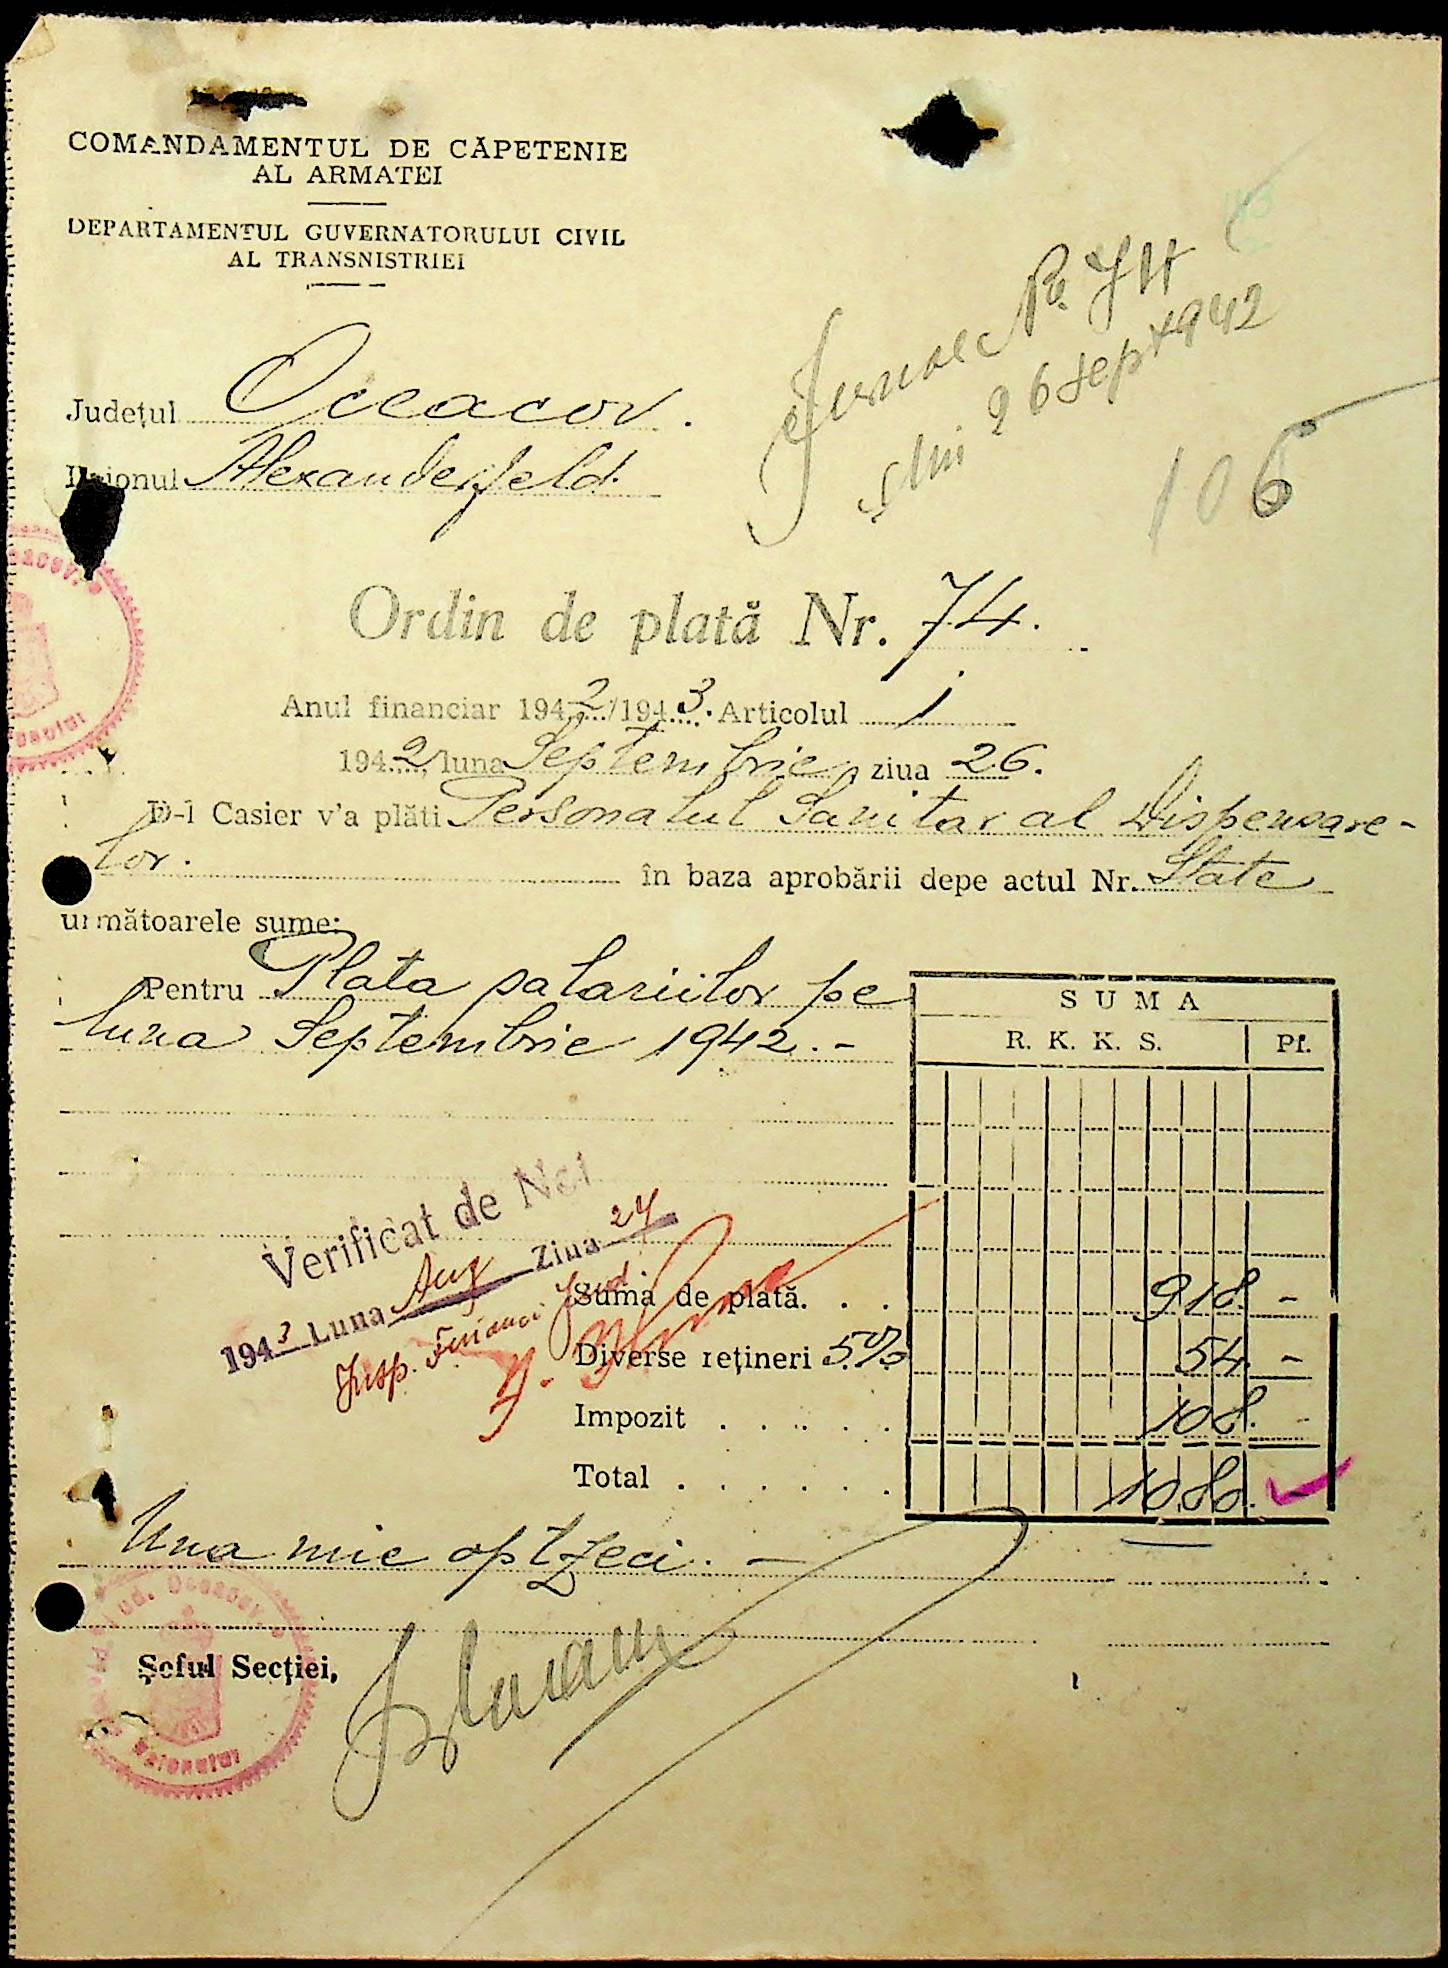 COMANDAMENTUL DE CĂPETENIE
AL ARMATEI
DEPARTAMENTUL GUVERNATORULUI CIVIL
AL TRANSNISTRIEI
Jurnal No. 74
din 26 sept 1942
106
Județul Oceacov.
Raionul Alexanderfeld.
Ordin de plată Nr. 74.
Anul financiar 1942/1943. Articolul 1
1942, luna Septembrie, ziua 26.
D-l Casier v'a plăti Personalul Sanitar al Dispensare-
lor. în baza aprobării depe actul Nr. State
următoarele sume:
Pentru Plata salariilor pe
luna Septembrie 1942. -
SUMA
R. K. K. S. Pf.
Verificat de Noi
1943 Luna Aug Ziua 24
Insp. Financiar Jud.
Suma de plată. . . 918. -
Diverse rețineri 5% 54. -
Impozit . . . . . 108. -
Total . . . . . . 1080. -
Una mie optzeci. -
Jud. Oceacov.
Raionului
Șeful Secției,